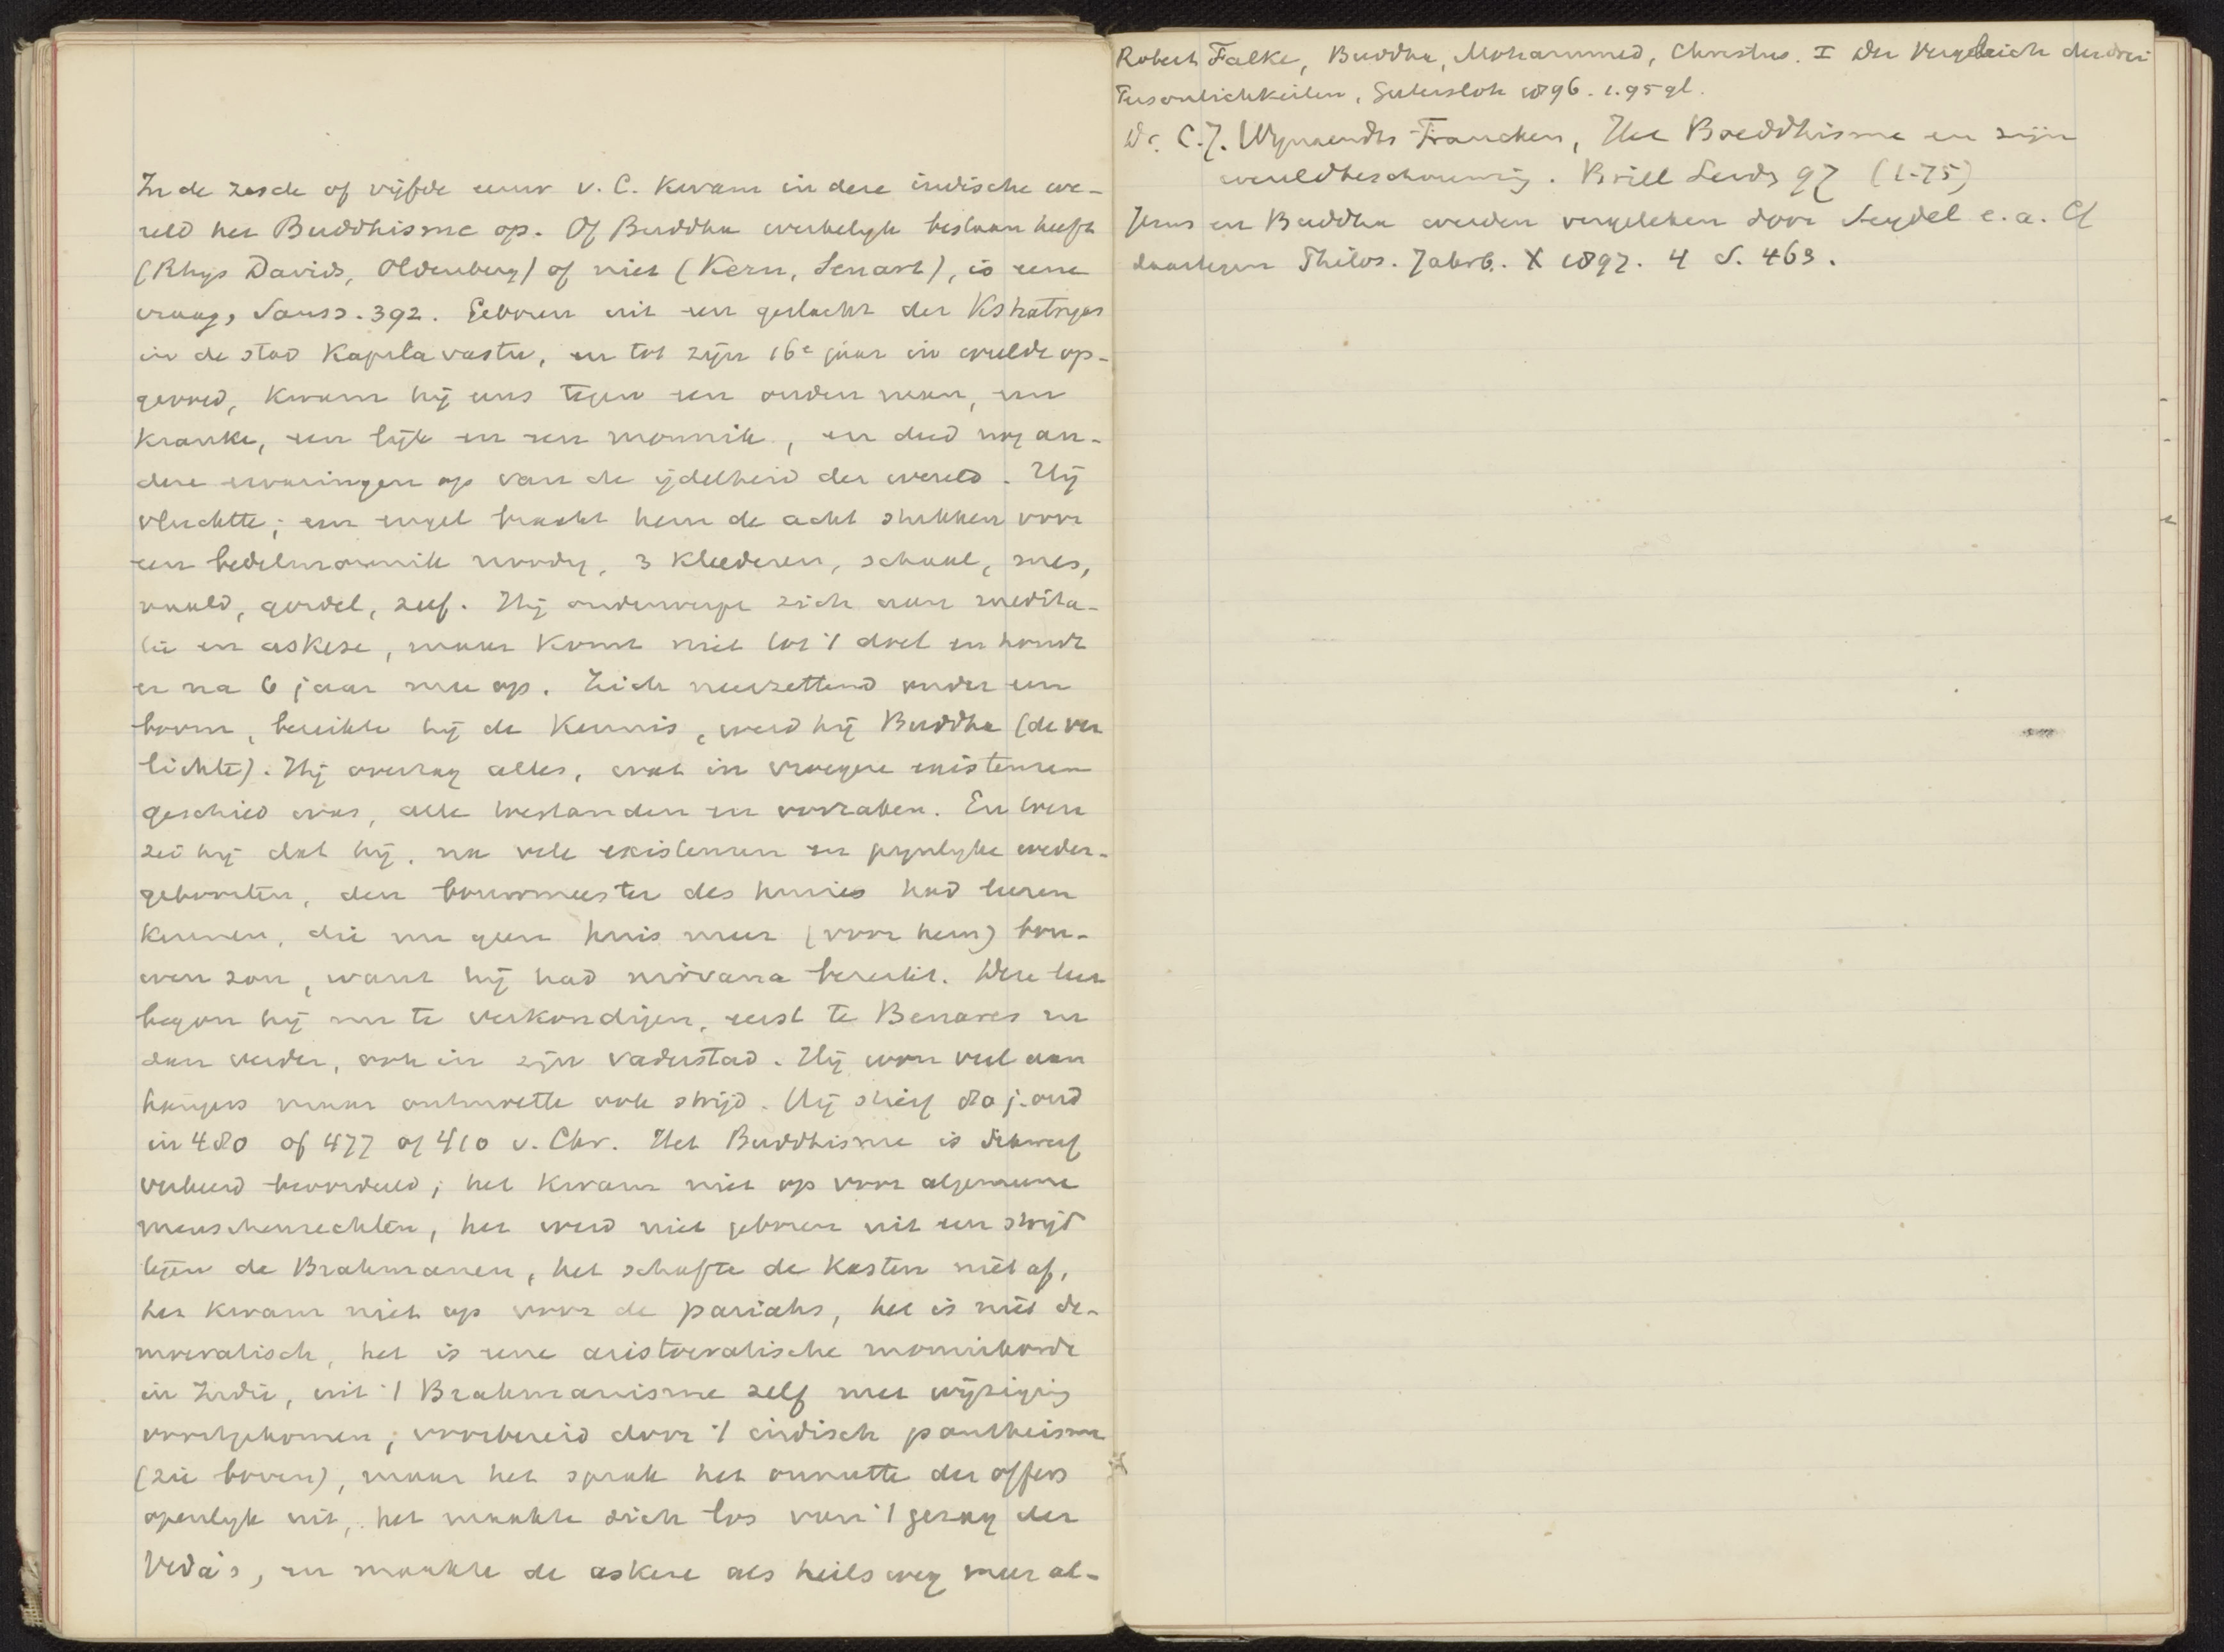 In de zesde of vijfde eeuw v. C. kwam in deze indische we-
reld het Buddhisme op. Of Buddha werkelyk bestaan heeft
(Rhys Davids, Oldenberg) of niet (Kern, Senart), is eene
vraag, Sauss. 392. Geboren uit een geslacht der Kshatryas
in de stad Kapilavastu, en tot zijn 16e jaar in weelde op-
gevoed, kwam hij eens tegen een ouden man, een
kranke, een lijk en een monnik, en deed nog an-
dere ervaringen op van de ijdelheid der wereld. Hij
vluchtte; een engel bracht hem de acht stukken voor
een bedelmonnik noodig, 3 kleederen, schaal, mes,
naald, gordel, zeef. Hij onderwerpt zich aan medita-
tie en askese, maar komt niet tot 't doel en houdt
er na 6 jaar mee op. Zich neerzettend onder een
boom, bereikte hij de kennis, werd hij Buddha (de ver
lichte). Hij overzag alles, wat in vroegere existenzen
geschied was, alle toestanden en oorzaken. En toen
zei hij dat hij, na vele existenzen en pynlyke weder-
geboorten, den bouwmeester des huizes had leeren
kennen, die nu geen huis meer (voor hem) bou-
wen zou, want hij had nirvana bereikt. Deze leer
begon hij nu te verkondigen, eerst te Benares en
dan verder, ook in zijn vaderstad. Hij won veel aan
hangers maar ontmoette ook strijd. Hij stierf 80 j. oud
in 480 of 477 of 410 v. Chr. Het Buddhisme is dikwerf
verkeerd beoordeeld; het kwam niet op voor algemeene
menschenrechten, het werd niet geboren uit een strijd
tegen de Brahmanen, het schafte de kasten niet af,
het kwam niet op voor de pariahs, het is niet de-
mocratisch, het is eene aristocratische monnikorde
in Indië, uit 't Brahmanisme zelf met wijziging
voortgekomen, voorbereid door 't indisch pantheisme
(zie boven), maar het sprak het onnutte der offers
openlyk uit, het maakte zich los van 't gezag der
Veda's, en maakte de askese als heilsweg meer al-
Robert Falke, Buddha, Mohammed, Christus. I Der Vergleich der drei
Persönlichkeiten, Gütersloh 1896. 1.95 gl.
Dr. C.J. Wijnaendts Francken, Het Boeddhisme en zijn
wereldbeschouwing. Brill Leids 97 (1.75)
Jezus en Buddha werden vergeleken door Seydel e.a. Cf
daartegen Philos. Jahrb. X 1897. 4 S. 463.